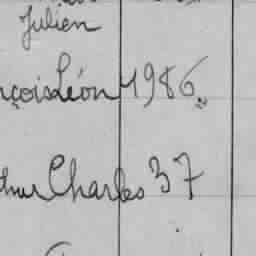 Julien
nçois Léon 1986
thur Charles 37